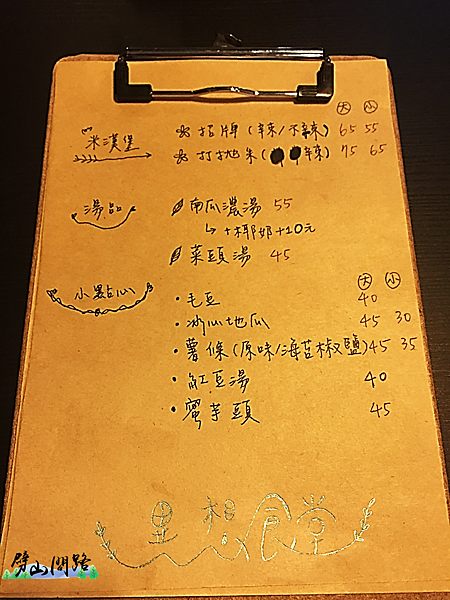 大 小
米漢堡
招牌(辣/不辣) 65 55
打拋朱(辣) 75 65
湯品
南瓜濃湯 55
↳ +椰奶+10元
菜頭湯 45
小點心
大 小
・毛豆 40
・冰心地瓜 45 30
・薯條(原味/海苔椒鹽) 45 35
・紅豆湯 40
・蜜芋頭 45
異想食堂
劈山問路